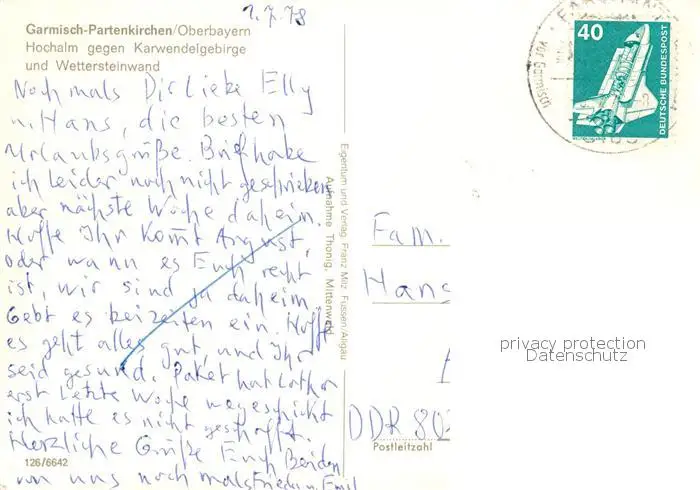 1.7.78
Garmisch-Partenkirchen/Oberbayern
Hochalm gegen Karwendelgebirge
und Wettersteinwand
Nochmals Dir liebe Elly
u. Hans, die besten
Urlaubsgrüße. Brief habe
ich leider noch nicht geschrieben
aber nächste Woche daheim.
Hoffe Ihr kommt August,
oder wann es Euch recht
ist, wir sind ja daheim.
Gebt es beizeiten ein. Hofft
es geht alles gut, und Ihr
seid gesund. Paket hat Lothar
erst letzte Woche wegeschickt
ich hatte es nicht geschafft.
Herzliche Grüße Euch Beiden
von uns nochmals Frieda u. Emil
126/6642
Eigentum und Verlag Franz Milz Füssen/Allgäu
Aufnahme Thonig, Mittenwald
40
DEUTSCHE BUNDESPOST
vor Garmisch
Fam.
Hans
DDR 80
Postleitzahl
privacy protection
Datenschutz